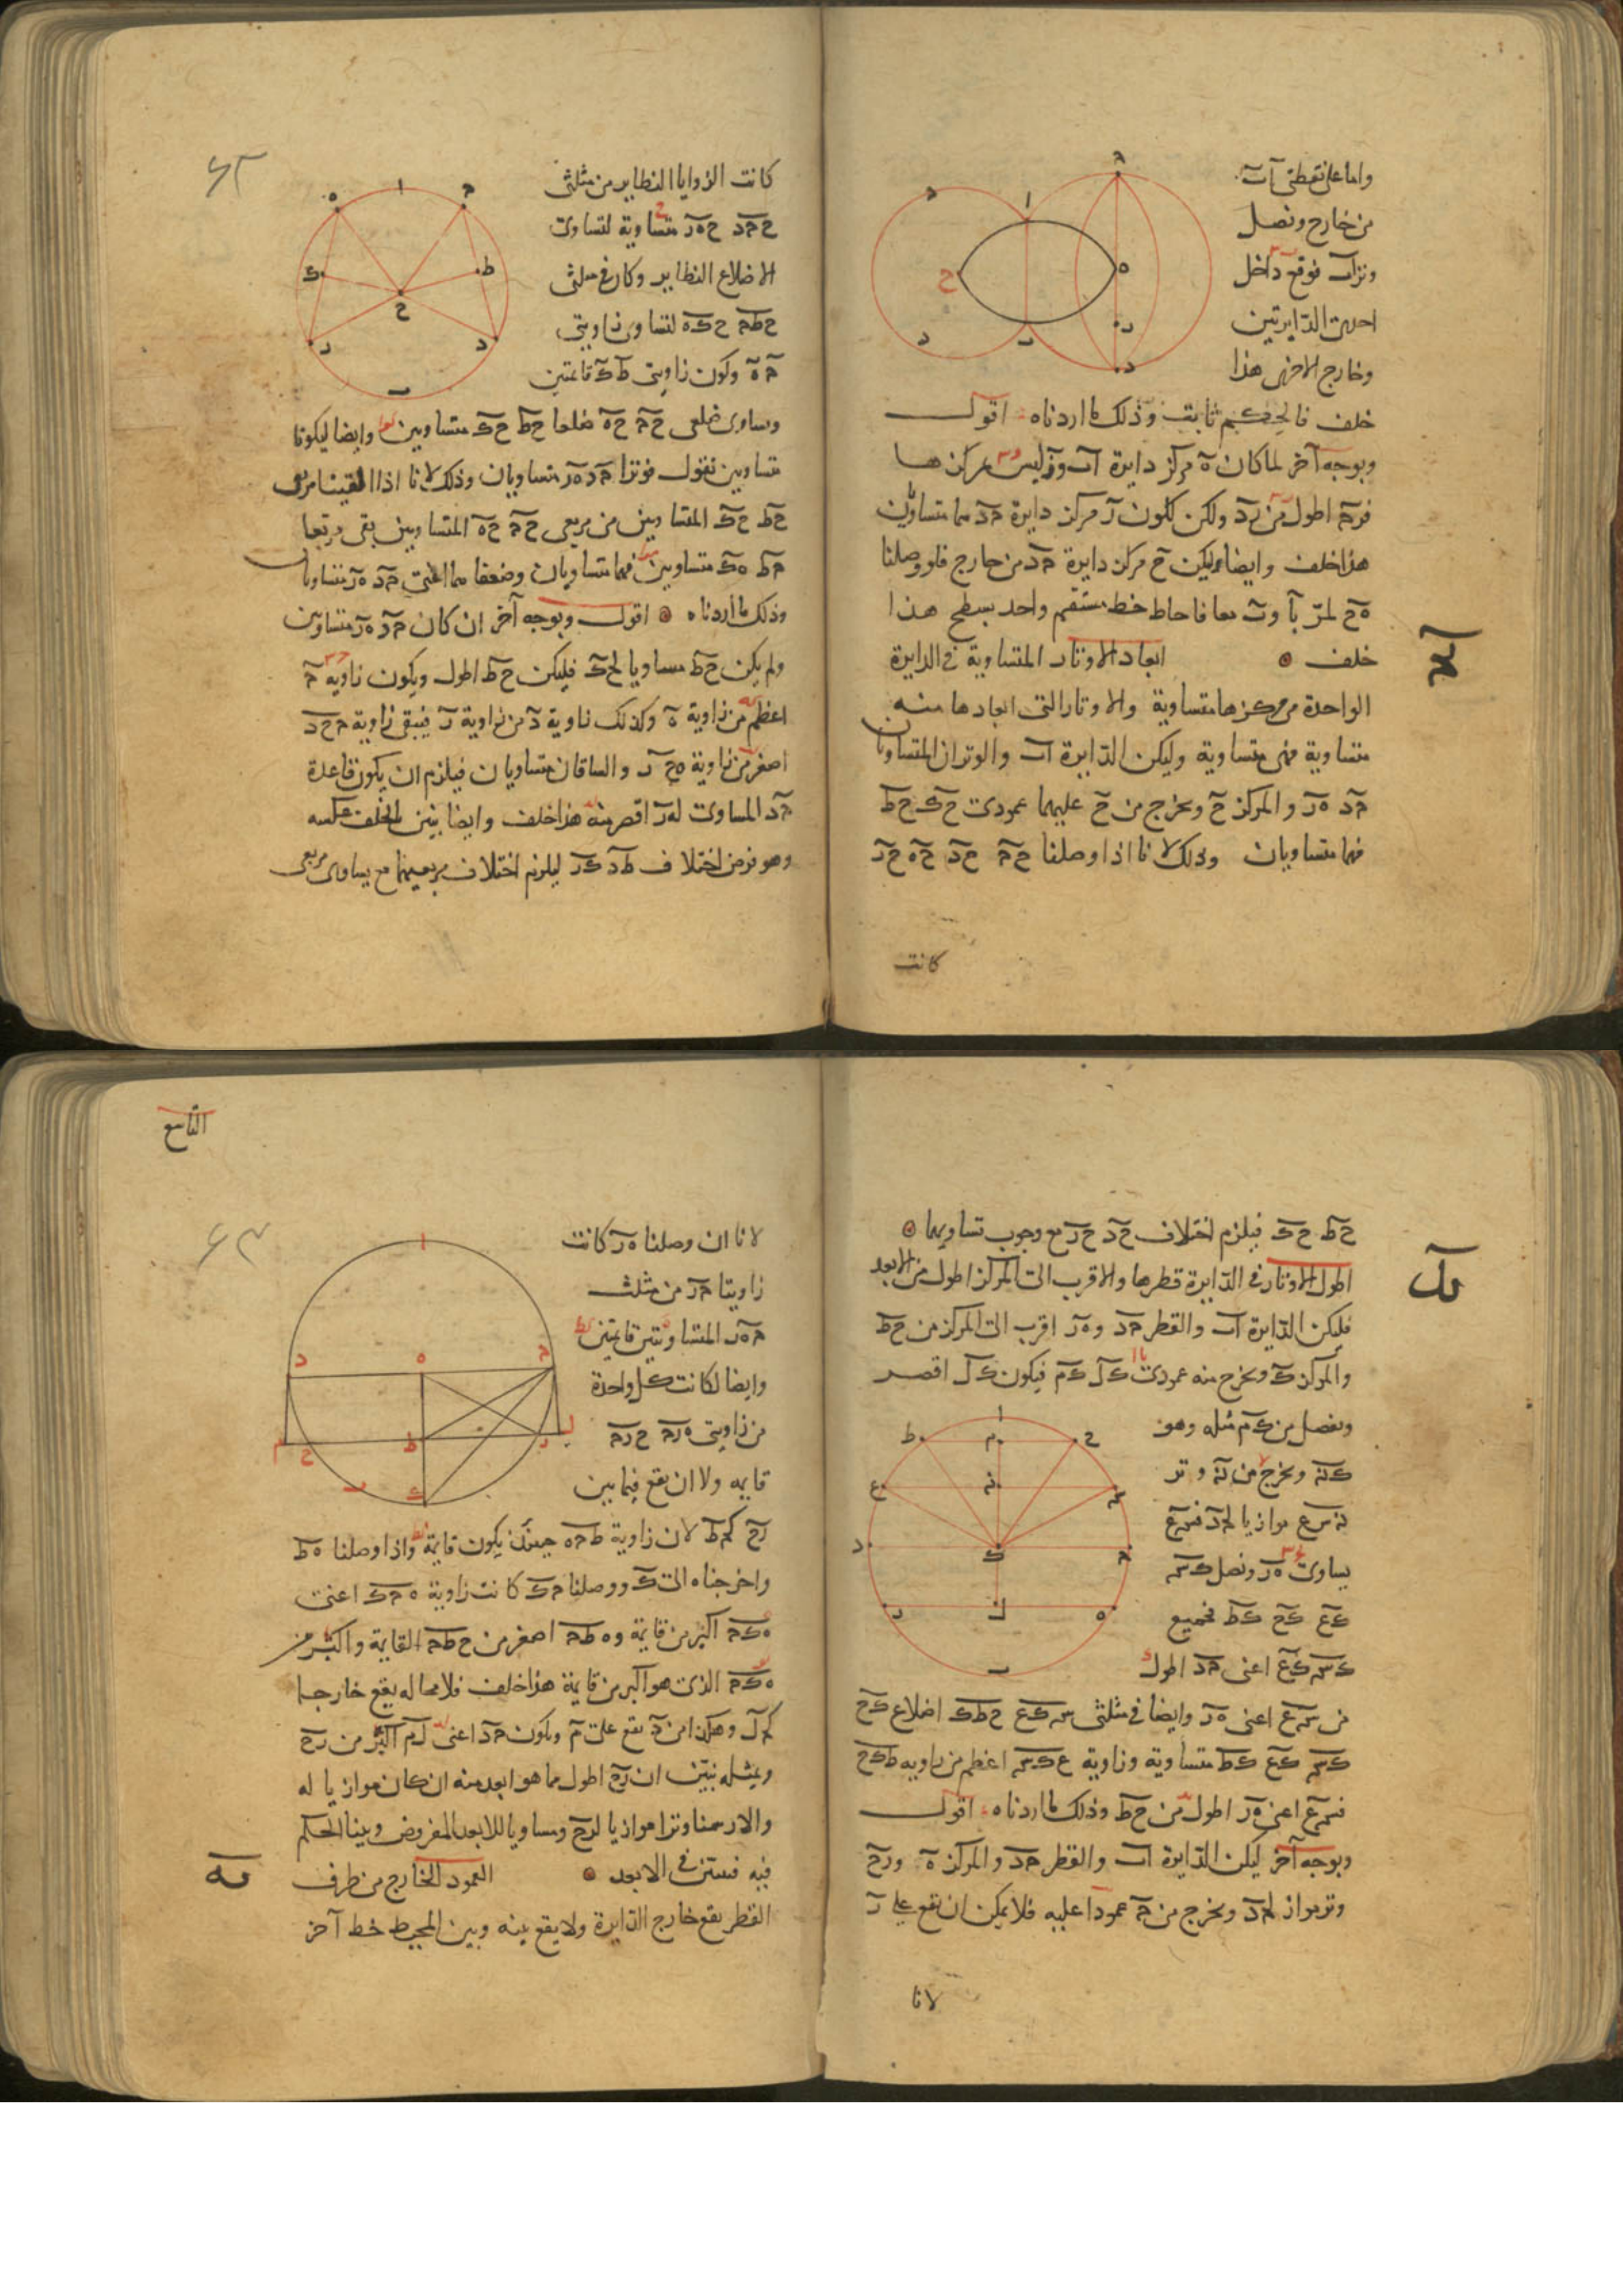 واما على نقطتى آ ب
من خارج ونصل
وتر اب فوقع داخل
احدى الدايرتين
وخارج الاخرى هذا
خلف فالحكم ثابت وذلك ما اردناه اقول
وبوجه آخر لما كان ه مركز دايرة اب و ليس مركزها
اطول من ولكن لكون ر مركز دايرة حد هما متساويان
هذا خلف وايضا ليكن ح مركز دايرة حد من خارج فلو وصلنا
ه ح لمر بآ وب معا فاحاط خط مستقيم واحد بسطح هذا
خلف ابعاد الاوتار المتساوية فى الدايرة
الواحدة من مركزها متساوية والاوتار التى ابعادها منه
متساوية فهى متساوية وليكن الدايرة اب والوتران المتساويان
حد هر والمركز ح ونخرج من ح عليهما عمودى حك حط
فهما متساويان وذلك لانا اذا وصلنا حح حد حه حر
كانت
٦٢
كانت الزوايا النظاير من مثلثى
ححد حهر متساوية لتساوى
الاضلاع النظاير وكان فى مثلثى
حطح حكه لتساوى زاويتى
ح ه وكون زاويتى ط ك قائمتين
وتساوى ضلعى حح حه ضلعا حط حك متساويين وايضا ليكونا
متساويين نقول فوترا حد هر متساويان وذلك لانا اذا القينا مربعى
حط حك المتساويين من مربعى حح حه المتساويين بقى مربعا
حط هك متساويين فهما متساويان وضعفاهما اعنى حد هر متساويان
وذلك ما اردناه اقول وبوجه آخر ان كان حد هر متساويين
ولم يكن حط مساويا لحك فليكن حط اطول ويكون زاوية ح
اعظم من زاوية ه وكذلك زاوية د من زاوية ر فيبقى زاوية ححد
اصغر من زاوية هحر والساقان متساويان فيلزم ان يكون قاعدة
حد المساوى لهر اقصر منه هذا خلف وايضا يتبين بالخلف عكسه
وهو نفرض اختلاف طد كر ليلزم اختلاف مربعيهما مع تساوى مربعى
كد
حط حك فيلزم اختلاف حد حر مع وجوب تساويهما
اطول الاوتار فى الدايرة قطرها والاقرب الى المركز اطول من الابعد
فليكن الدايرة اب والقطر حد وهر اقرب الى المركز من حط
والمركز ك ونخرج منه عمودى كل كم فيكون كل اقصر
ونفصل من كم مثله وهو
كن ونخرج من ن وتر
ن سع موازيا لحد فسع
يساوى هر ونصل كس
كع كح كط فجميع
كس كع اعنى حد اطول
من سع اعنى هر وايضا فى مثلثى سكع حطك اضلاع كح
كس كع كط متساوية وزاوية عكس اعظم من زاوية طكح
فسع اعنى هر اطول من حط وذلك ما اردناه اقول
وبوجه آخر ليكن الدايرة اب والقطر حد والمركز ه ورح
وتر مواز لحد ونخرج من ح عمودا عليه فلا يمكن ان يقع على ر
لانا
التاسع
٦٣
لانا ان وصلنا هر كانت
زاويتا حر من مثلث
حهر المتساويتين قائمتين
وايضا لكانت كل واحدة
من زاويتى هرح حرح
قائمه ولا ان يقع فيما بين
رح كحط لان زاوية طحه حينئذ يكون قائمة واذا وصلنا هط
واخرجناه الى ك ووصلنا حك كانت زاوية هحك اعنى
هكح اكبر من قائمة وهطح اصغر من حطح القائمة واكبر من
هكح الذى هو اكبر من قائمة هذا خلف فلا محاله يقع خارجا
كحل وهكذا من د يقع على م ويكون حد اعنى لم اكبر من رح
وبمثله نبين ان رح اطول مما هو ابعد منه ان كان موازيا له
والا رسمنا وترا موازيا لرح ومساويا للابعد المفروض وبينا الحكم
فيه فيستبين فى الابعد العمود الخارج من طرف
كه
القطر يقع خارج الدايرة ولا يقع بينه وبين المحيط خط آخر